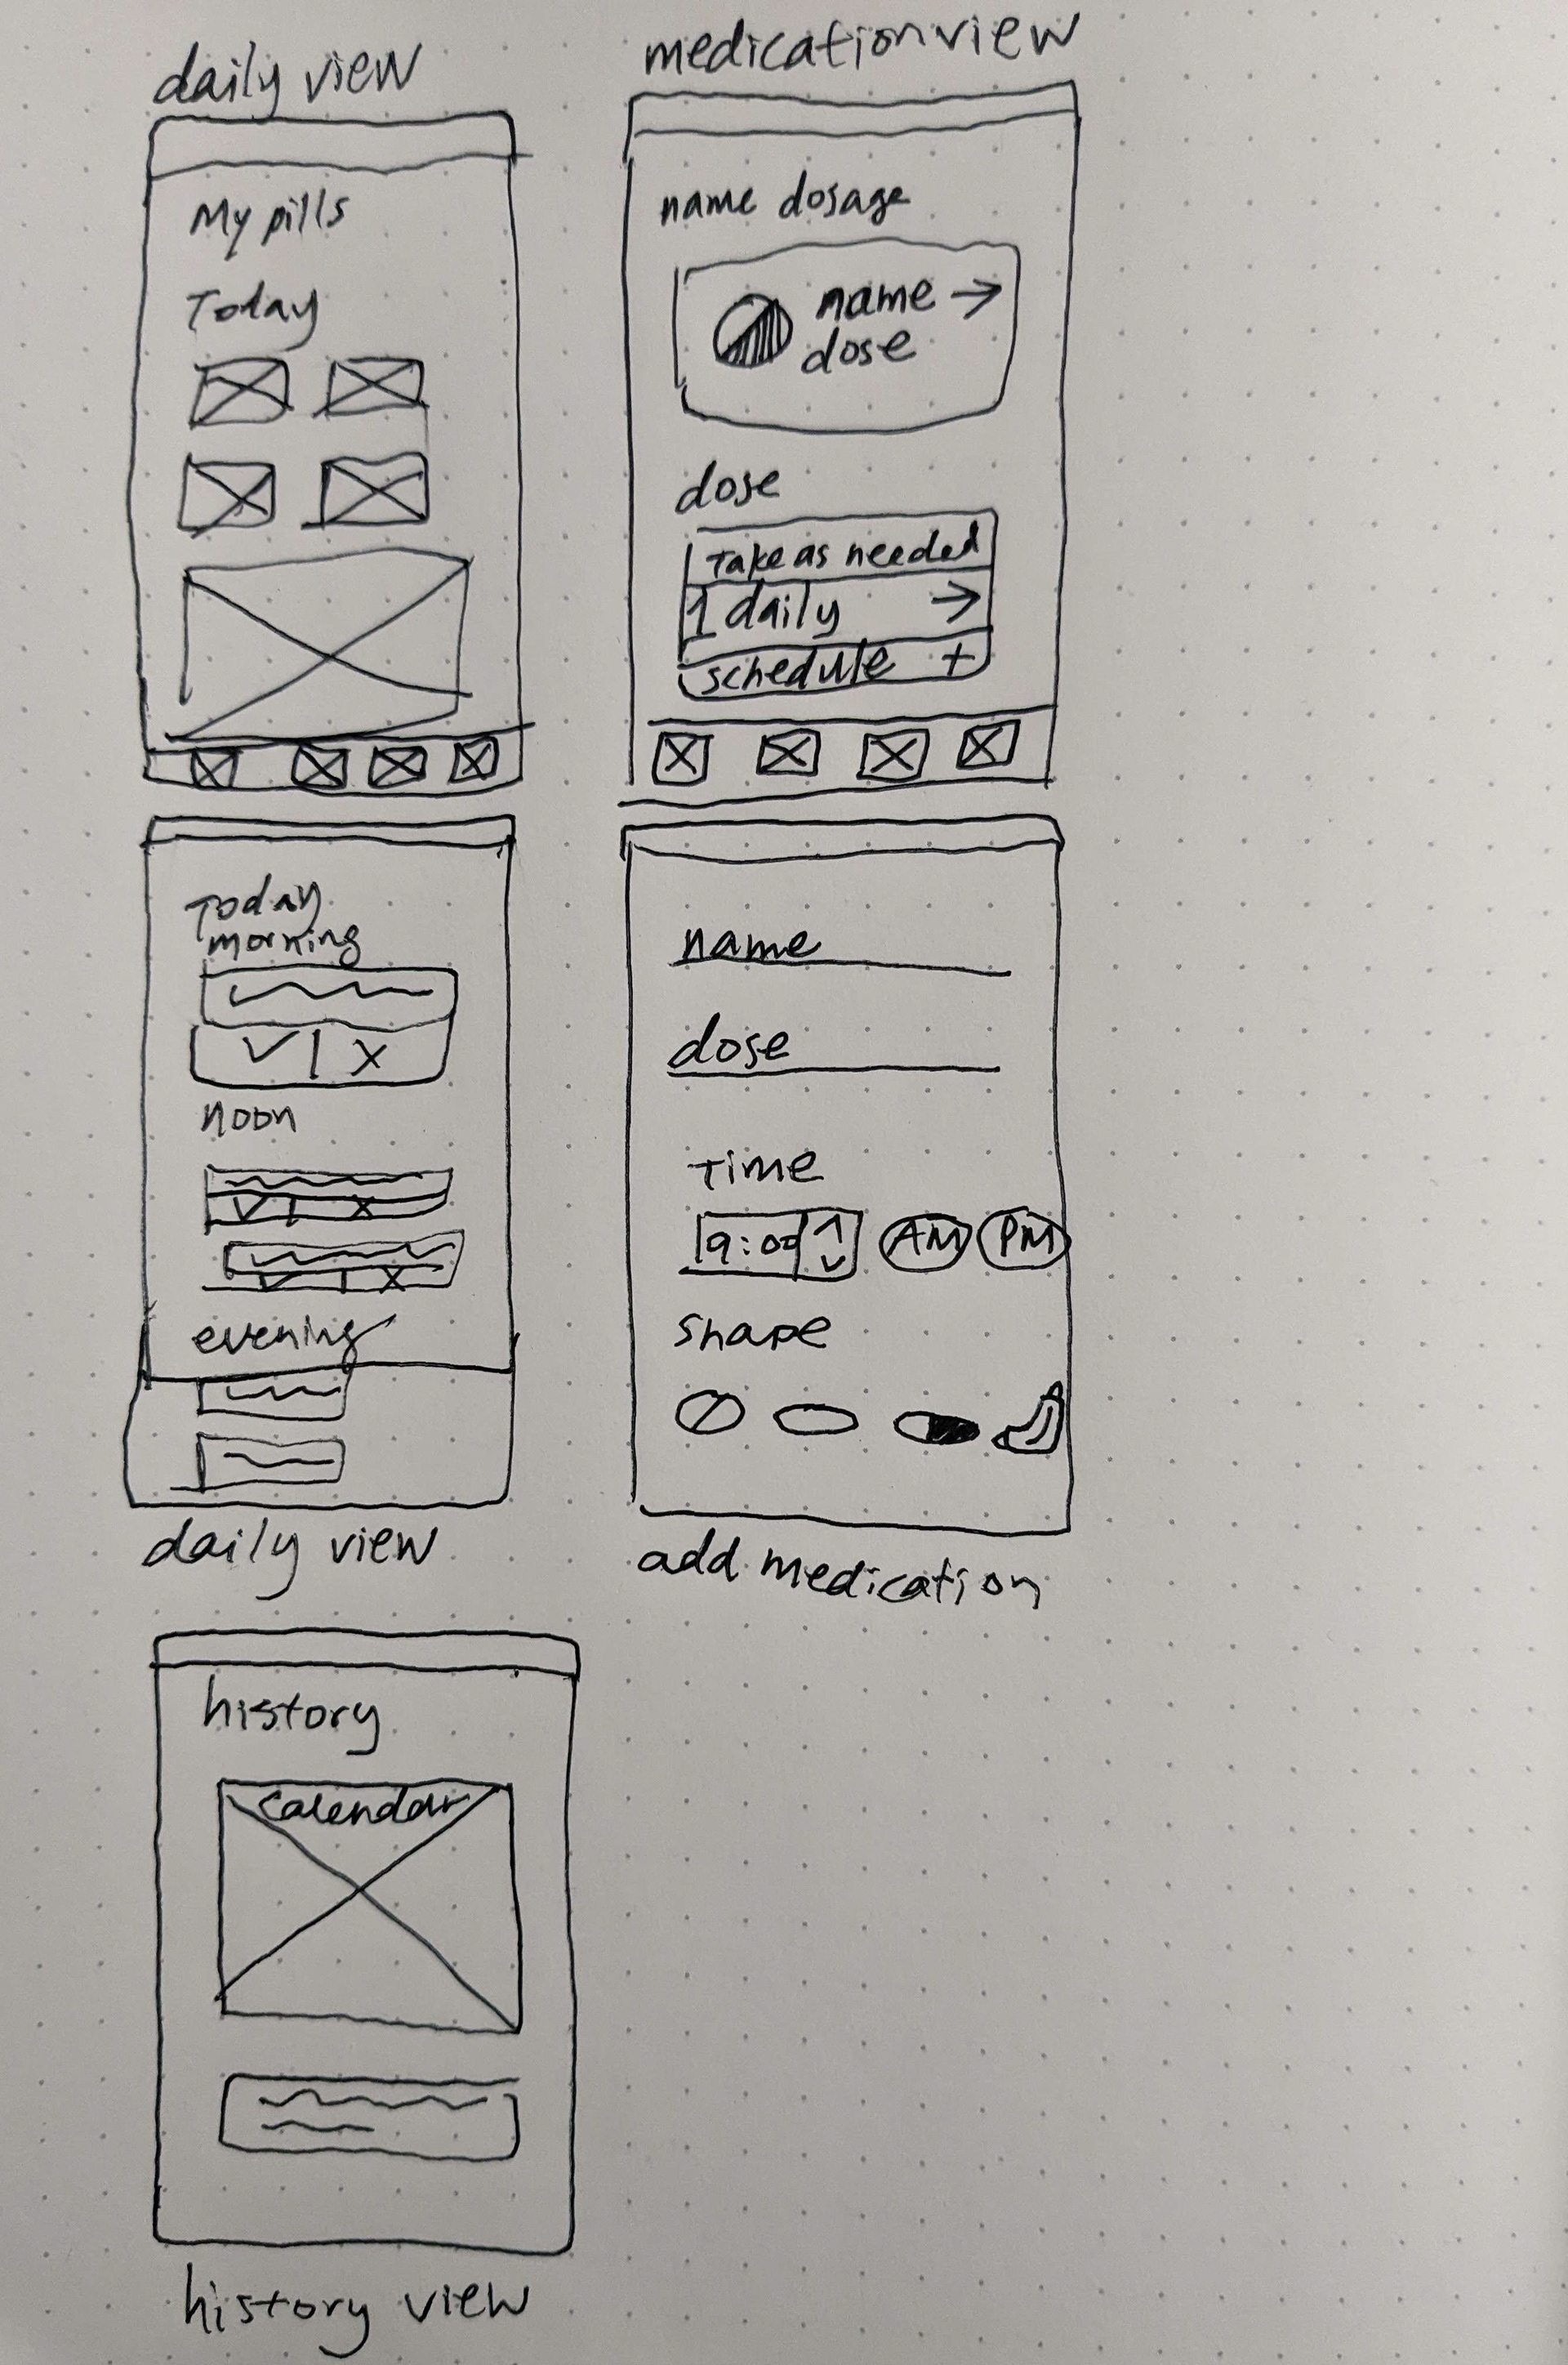 daily view
My pills
Today
medication view
name dosage
name →
dose
dose
Take as needed
1 daily →
schedule +
Today
morning
✓ | X
noon
✓ | X
✓ | X
evening
daily view
name
dose
Time
9:00 AM PM
shape
add medication
history
calendar
history view